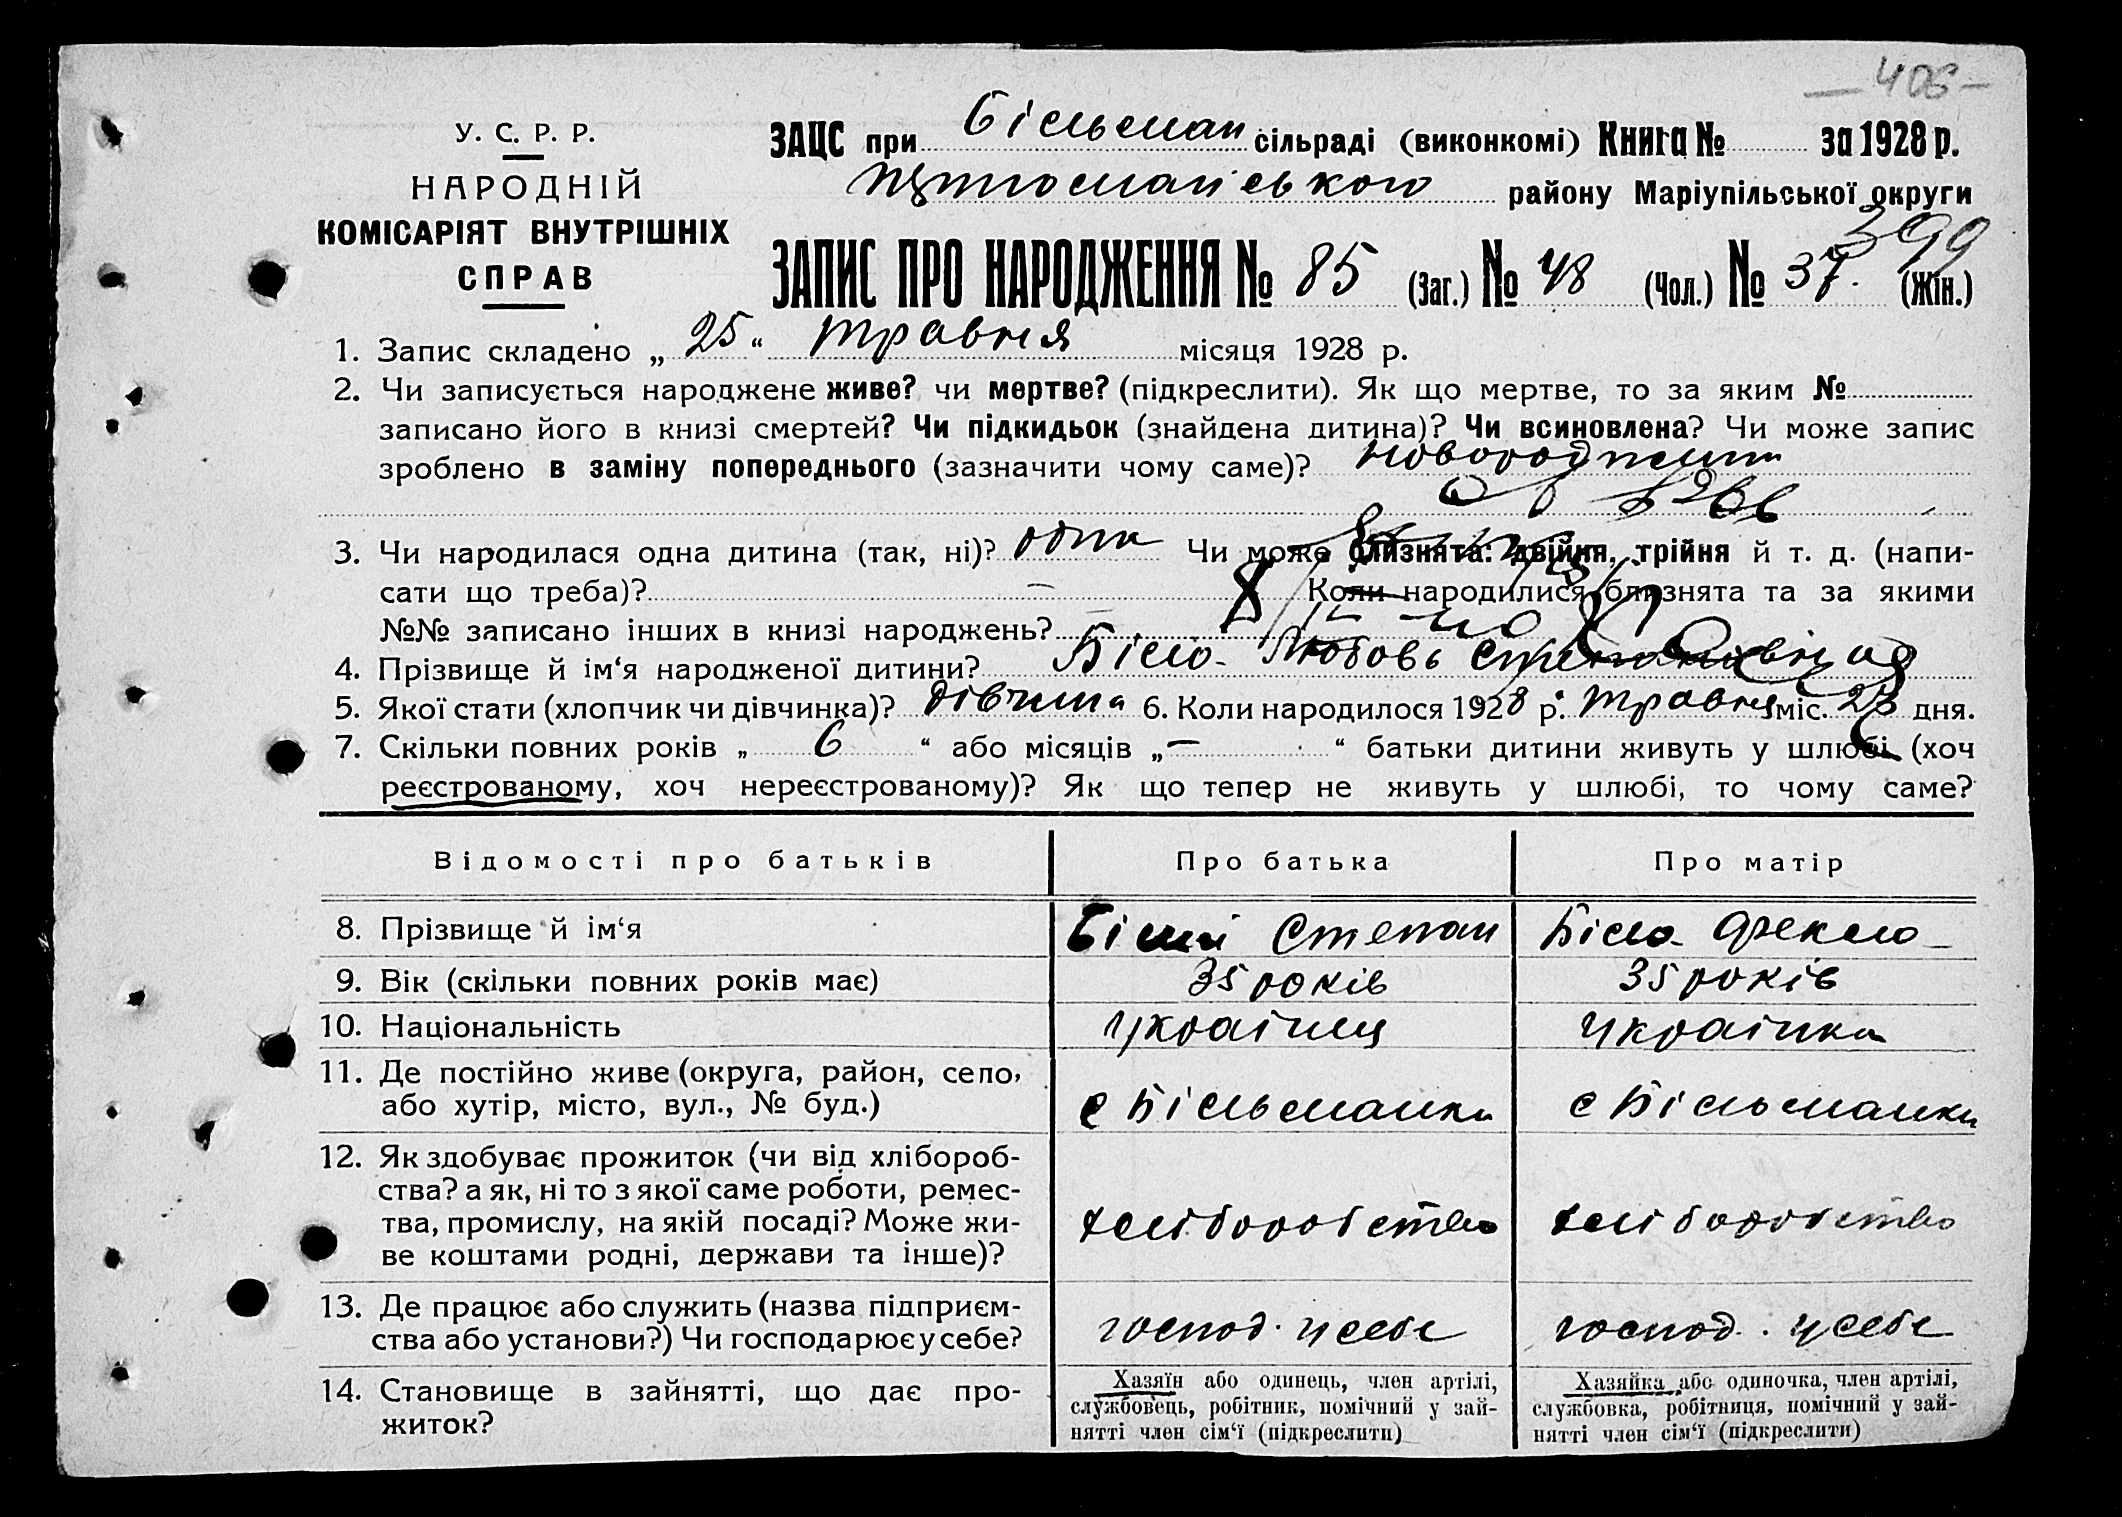 — 406 —
У. С. Р. Р.
НАРОДНІЙ
КОМІСАРІЯТ ВНУТРІШНІХ
СПРАВ
ЗАЦС при Більман сільраді (виконкомі) Книга № за 1928 р.
району Маріупільської округи
399
ЗАПИС ПРО НАРОДЖЕННЯ № 85 (Заг.) № 48 (Чол.) № 37. (Жін.)
1. Запис складено „ 25 “ травня місяця 1928 р.
2. Чи записується народжене живе? чи мертве? (підкреслити). Як що мертве, то за яким №
записано його в книзі смертей? Чи підкидьок (знайдена дитина)? Чи всиновлена? Чи може запис
зроблено в заміну попереднього (зазначити чому саме)?
3. Чи народилася одна дитина (так, ні)? одна Чи може близнята: двійня, трійня й т. д. (напи-
сати що треба)? — Коли народилися близнята та за якими
№№ записано інших в книзі народжень?
4. Прізвище й ім‘я народженої дитини? Біла Любовь
5. Якої стати (хлопчик чи дівчинка)? дівчина 6. Коли народилось 1928 р. травня міс. дня.
7. Скільки повних років „ 6 “ або місяців „ — “ батьки дитини живуть у шлюбі (хоч
реєстрованому, хоч нереєстрованому)? Як що тепер не живуть у шлюбі, то чому саме?
Відомості про батьків Про батька Про матір
8. Прізвище й ім‘я Білий Степан Біла Фекла
9. Вік (скільки повних років має) 35 років 35 років
10. Національність українец українка
11. Де постійно живе (округа, район, село,
або хутір, місто, вул., № буд.) с Більманка с Більманка
12. Як здобуває прожиток (чи від хлібороб-
ства? а як, ні то з якої саме роботи, ремес-
тва, промислу, на якій посаді? Може жи- хліборобство хліборобство
ве коштами родні, держави та інше)?
13. Де працює або служить (назва підприєм-
ства або установи?) Чи господарює у себе? господ. у себе господ. у себе
14. Становище в зайнятті, що дає про-
житок?
Хазяїн або одинець, член артілі,
службовець, робітник, помічний у зай-
нятті член сім‘ї (підкреслити)
Хазяйка або одиночка, член артілі,
службовка, робітниця, помічний у зай-
нятті член сім‘ї (підкреслити)